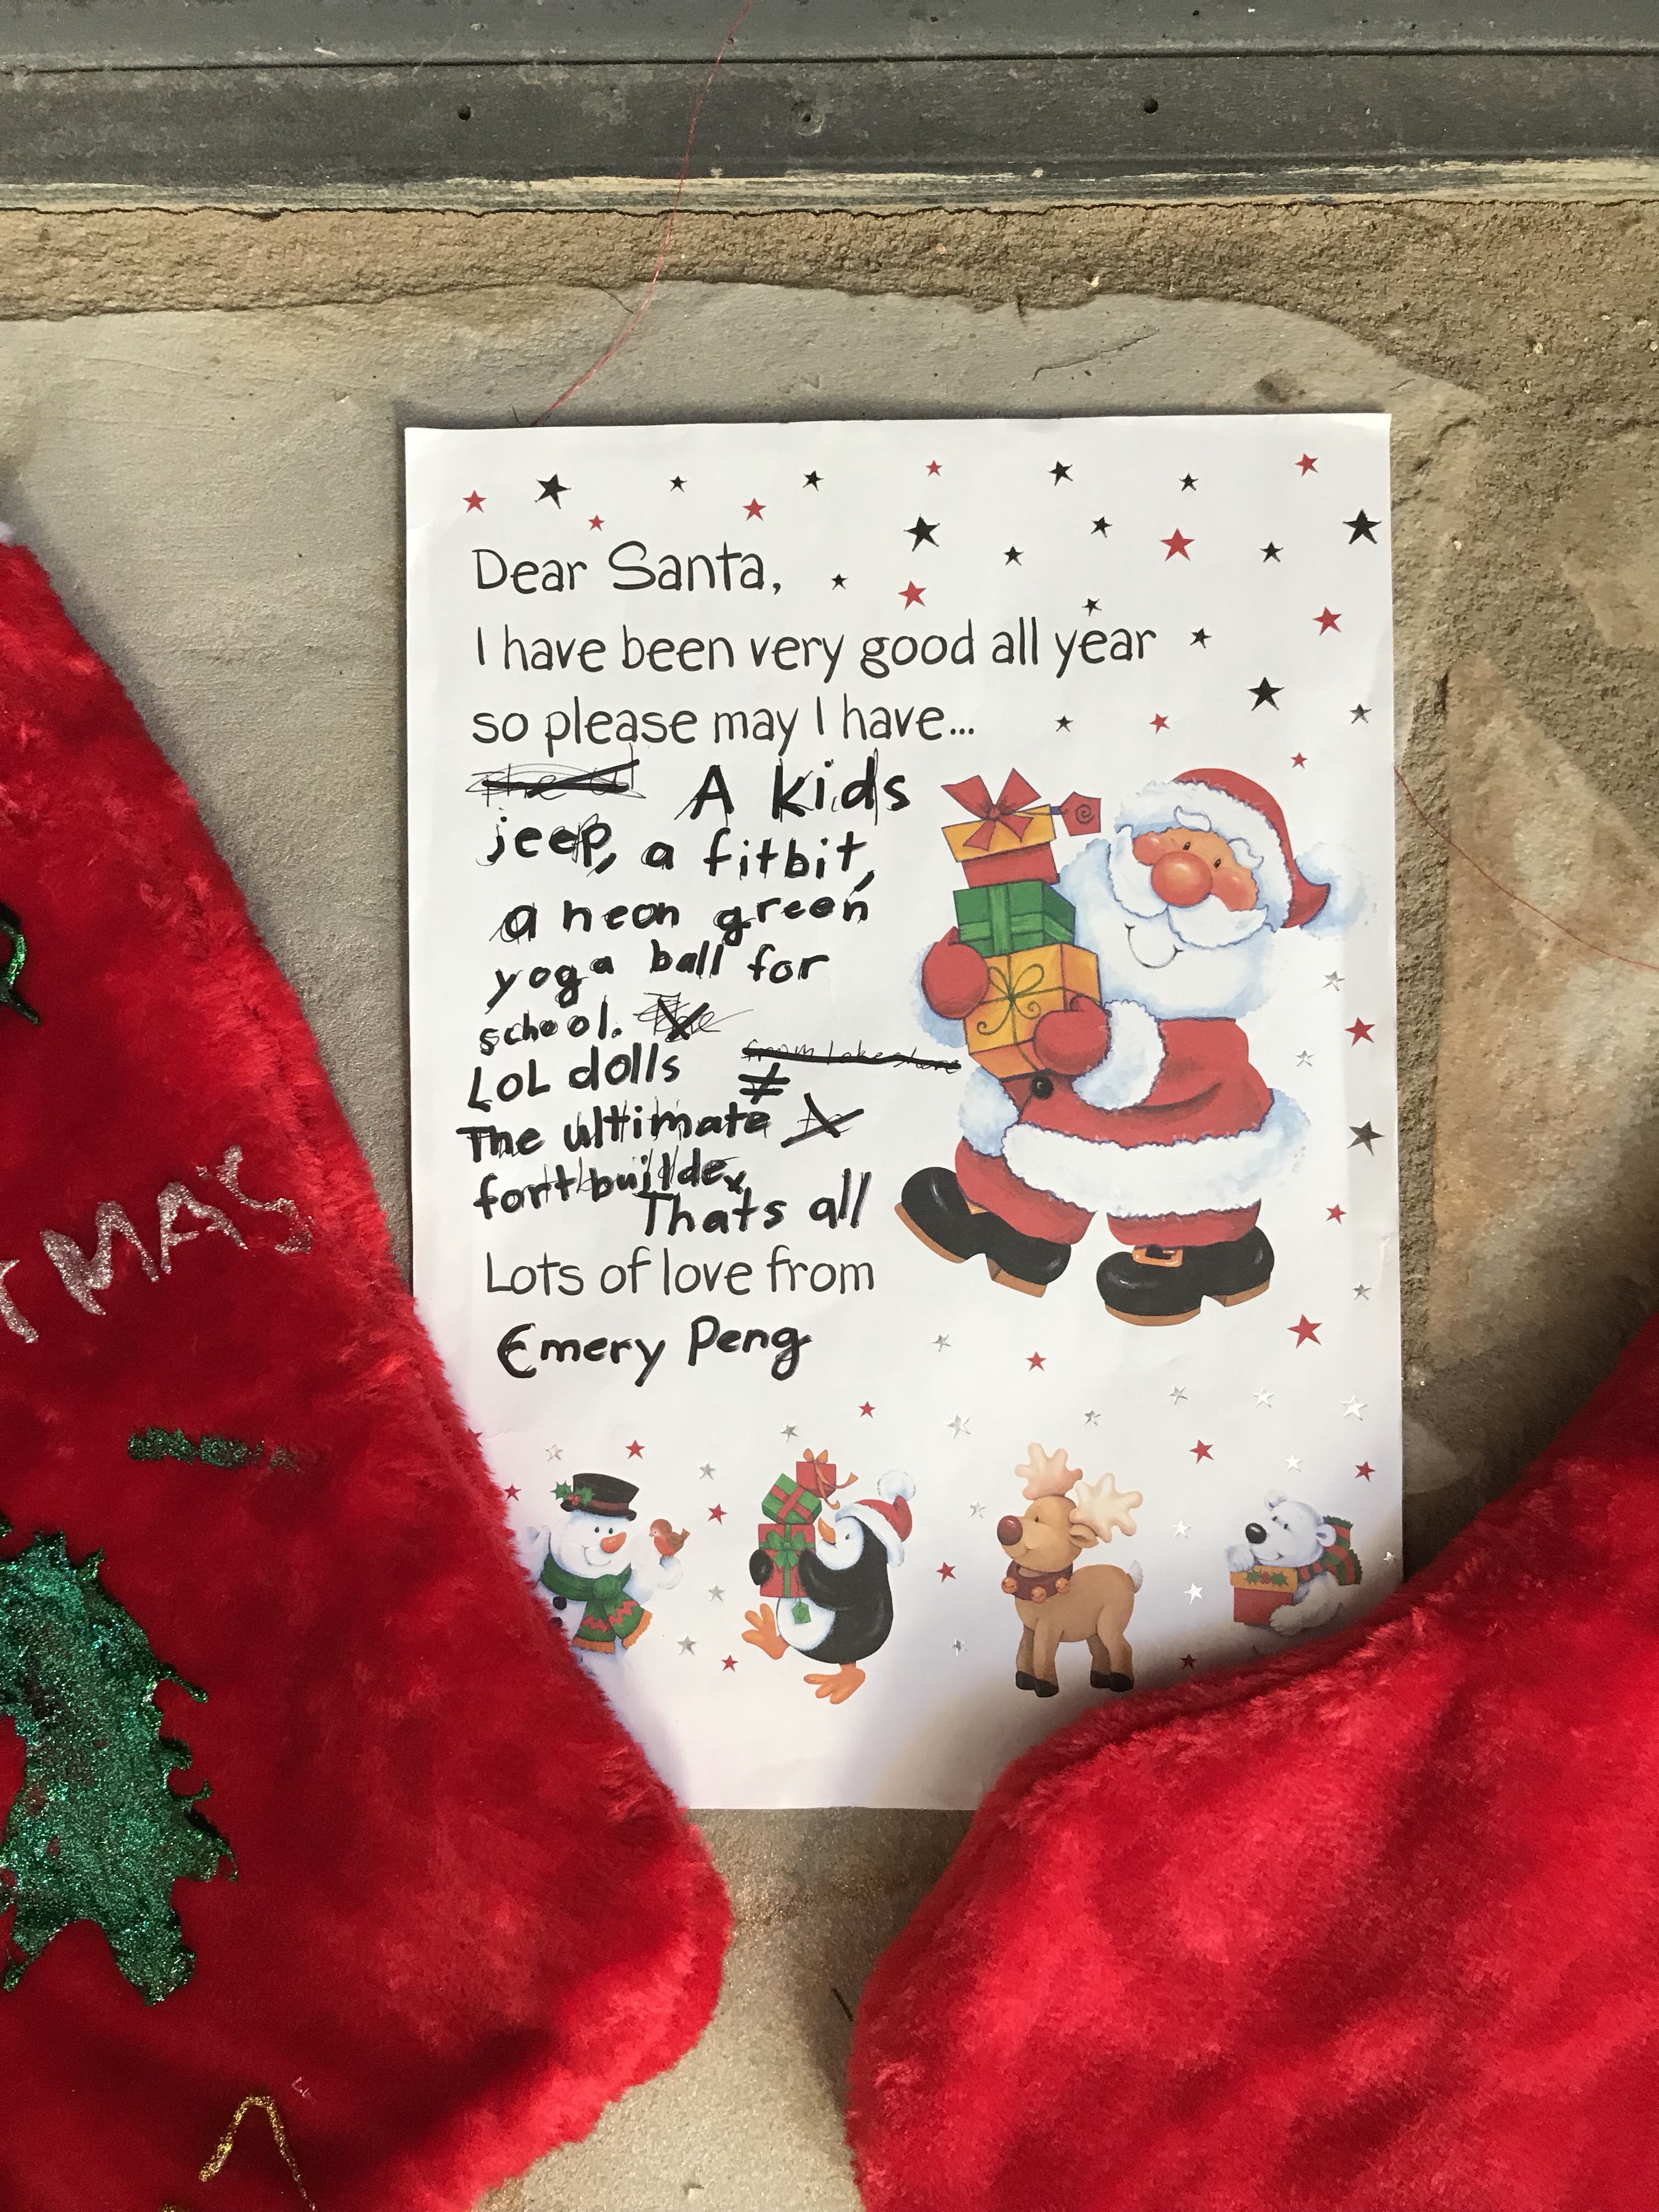 Dear Santa,
I have been very good all year
so please may I have...
A kids
jeep, a fitbit,
a neon green
yoga ball for
school.
LOL dolls from lakeshore
The ultimate
fort builder
Thats all
Lots of love from
Emery Peng
TMAS